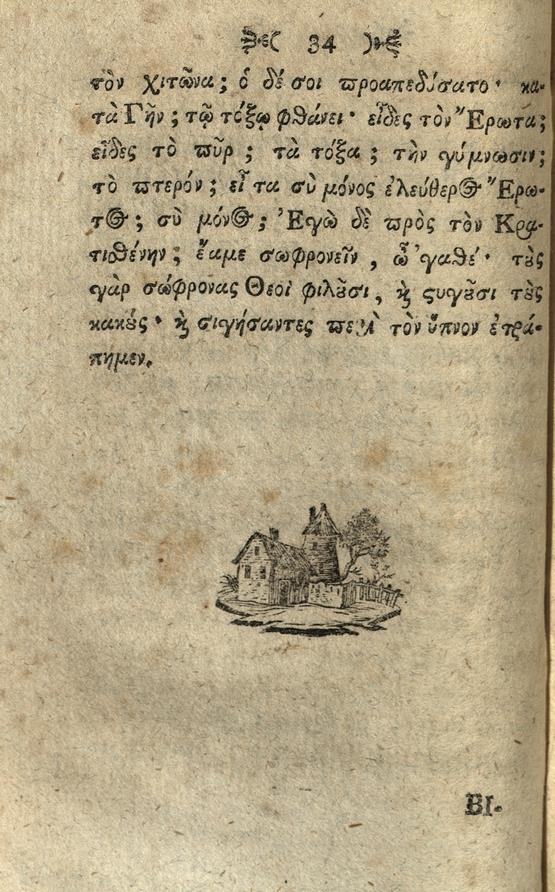 34
τὸν χιτῶνα; ὁ δέ σοι προαπεδύσατο· κα-
τὰ Γῆν; τῷ τόξῳ φθάνει· εἶδες τὸν Ἔρωτα;
εἶδες τὸ πῦρ; τὰ τόξα; τὴν γύμνωσιν;
τὸ πτερόν; εἶ τα σὺ μόνος ἐλεύθερος Ἔρω-
τος; σὺ μόνος; Ἐγὼ δὲ πρὸς τὸν Κρα-
τισθένην; ἔαμε σωφρονεῖν, ὦ 'γαθέ· τȣς
γὰρ σώφρονας Θεοὶ φιλȣσι, ϗ ςυγȣσι τȣς
κακȣς· ϗ σιγήσαντες περὶ τὸν ὕπνον ἐτρά-
πημεν.
ΒΙ-